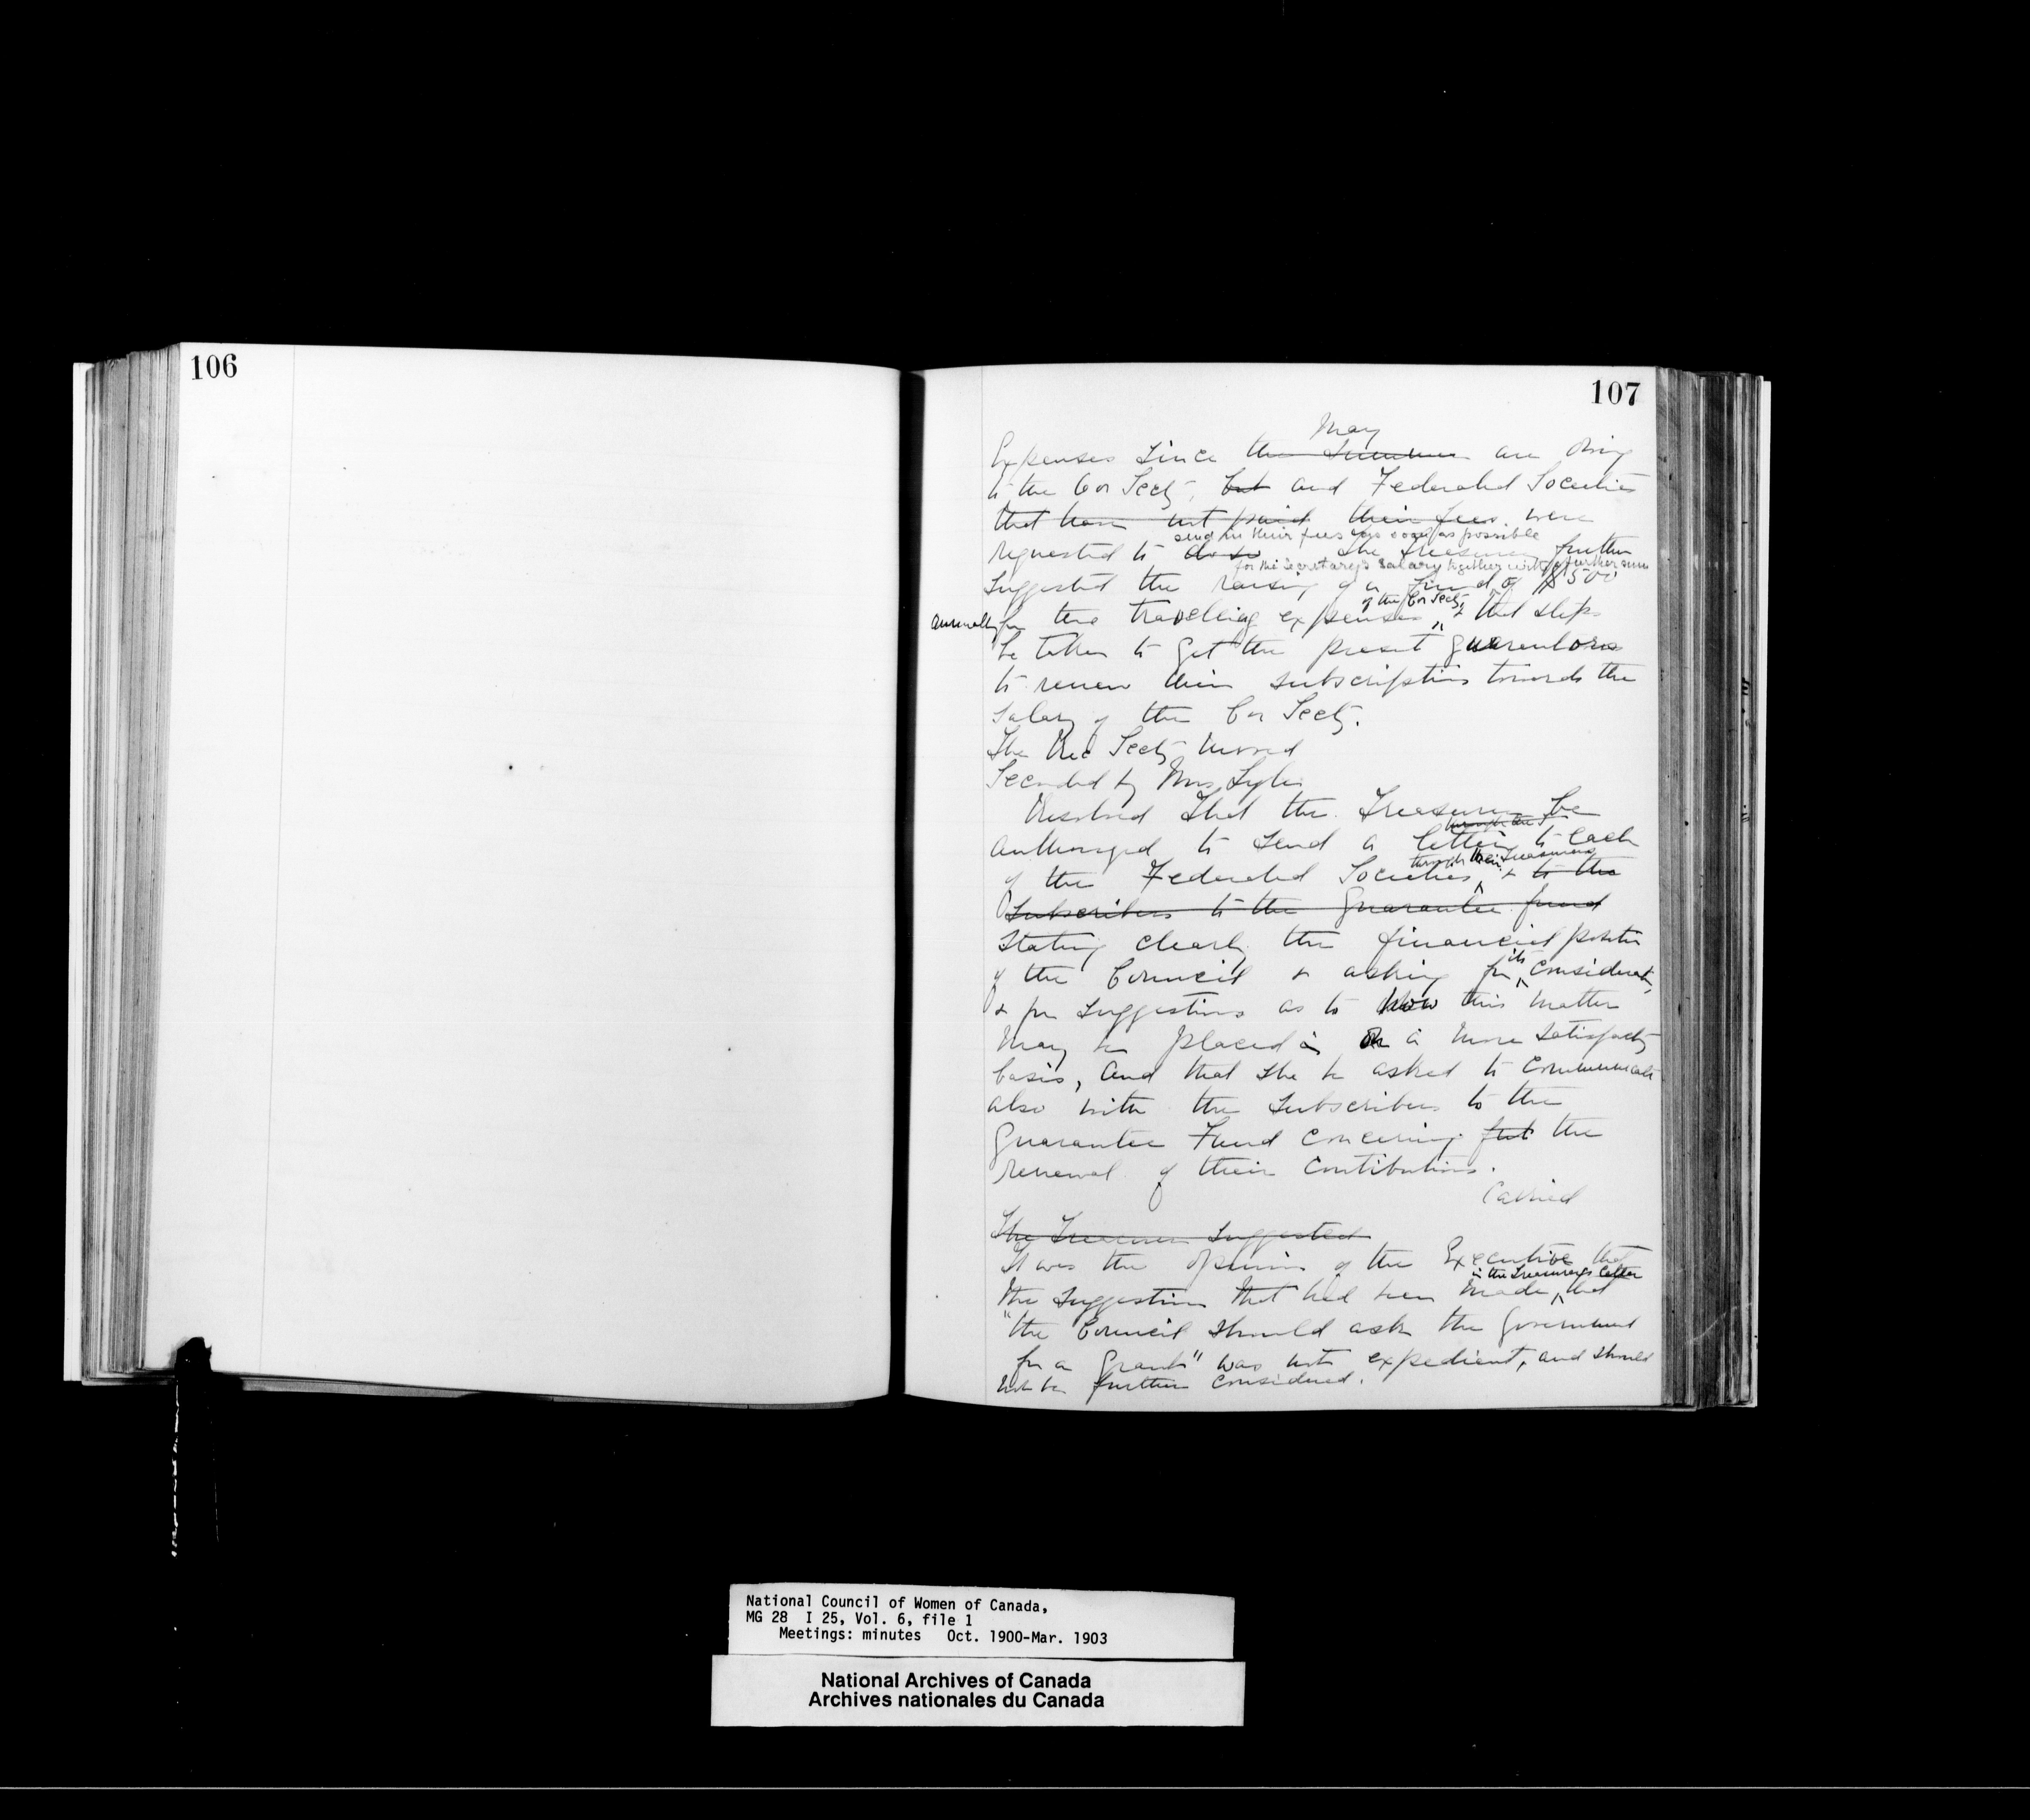 106
107
May
Expenses since the Summer are owing
to the Cor Secty, but and Federated Societies
that have not paid their fees were
send in their fees as soon as possible
requested to do so The Treasurer further
for the Secretary's Salary together with a further sum
suggested the raising of a fund of $500
of the Cor Secty
annually for the traveling expenses & that steps
be taken to get the present guarentors
to renew their subscriptions towards the
salary of the Cor Secty.
The Rec Secty moved
Seconded by Mrs
Resolved That the Treasurer be
through the
authorized to send a letter to each
through their Treasurers
of the Federated Societies & to the
Subscribers to the Guarantee fund
stating clearly the financial position
its
of the Council & asking for consideration,
& for suggestions as to how this matter
may be placed on a more satisfactory
basis, and that she be asked to communicate
also with the subscribers to the
Guarantee Fund concerning the
renewal of their contibutions.
Carried
The Treasurer suggested
It was the opinion of the Executive that
in the Treasurer's letter
the suggestion that had been made, that
"the Council should ask the Government
for a grant" was not expedient, and should
not be further considered.
National Council of Women of Canada,
MG 28 I 25, Vol. 6, file 1
Meetings: minutes Oct. 1900-Mar. 1903
National Archives of Canada
Archives nationales du Canada